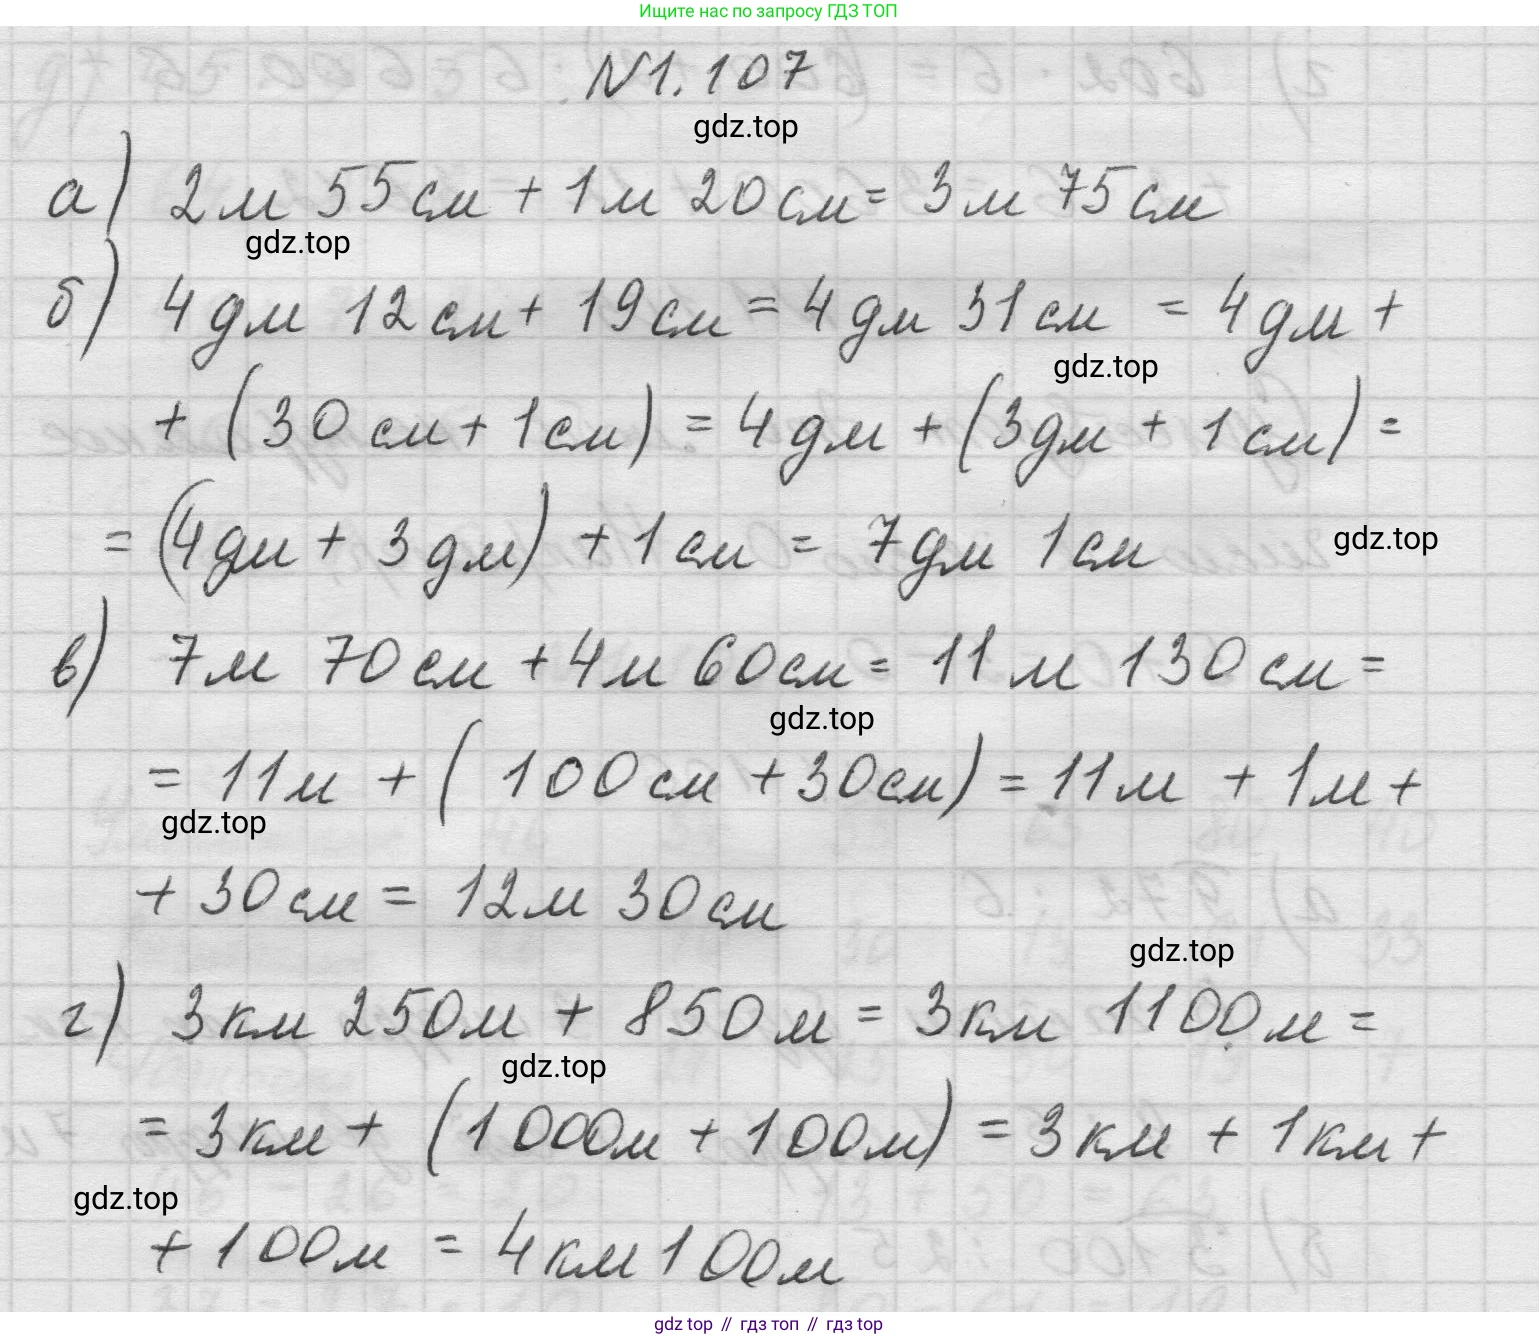 Ищите нас по запросу ГДЗ ТОП
№1.107
gdz.top
а) 2м 55см + 1м 20см = 3м 75см
gdz.top
б) 4дм 12см + 19см = 4дм 31см = 4дм +
gdz.top
+ (30см + 1см) = 4дм + (3дм + 1см) =
= (4дм + 3дм) + 1см = 7дм 1см
gdz.top
в) 7м 70см + 4м 60см = 11м 130см =
gdz.top
= 11м + (100см + 30см) = 11м + 1м +
gdz.top
+ 30см = 12м 30см
gdz.top
г) 3км 250м + 850м = 3км 1100м =
gdz.top
= 3км + (1000м + 100м) = 3км + 1км +
gdz.top
+ 100м = 4км 100м
gdz top // гдз топ // гдз top